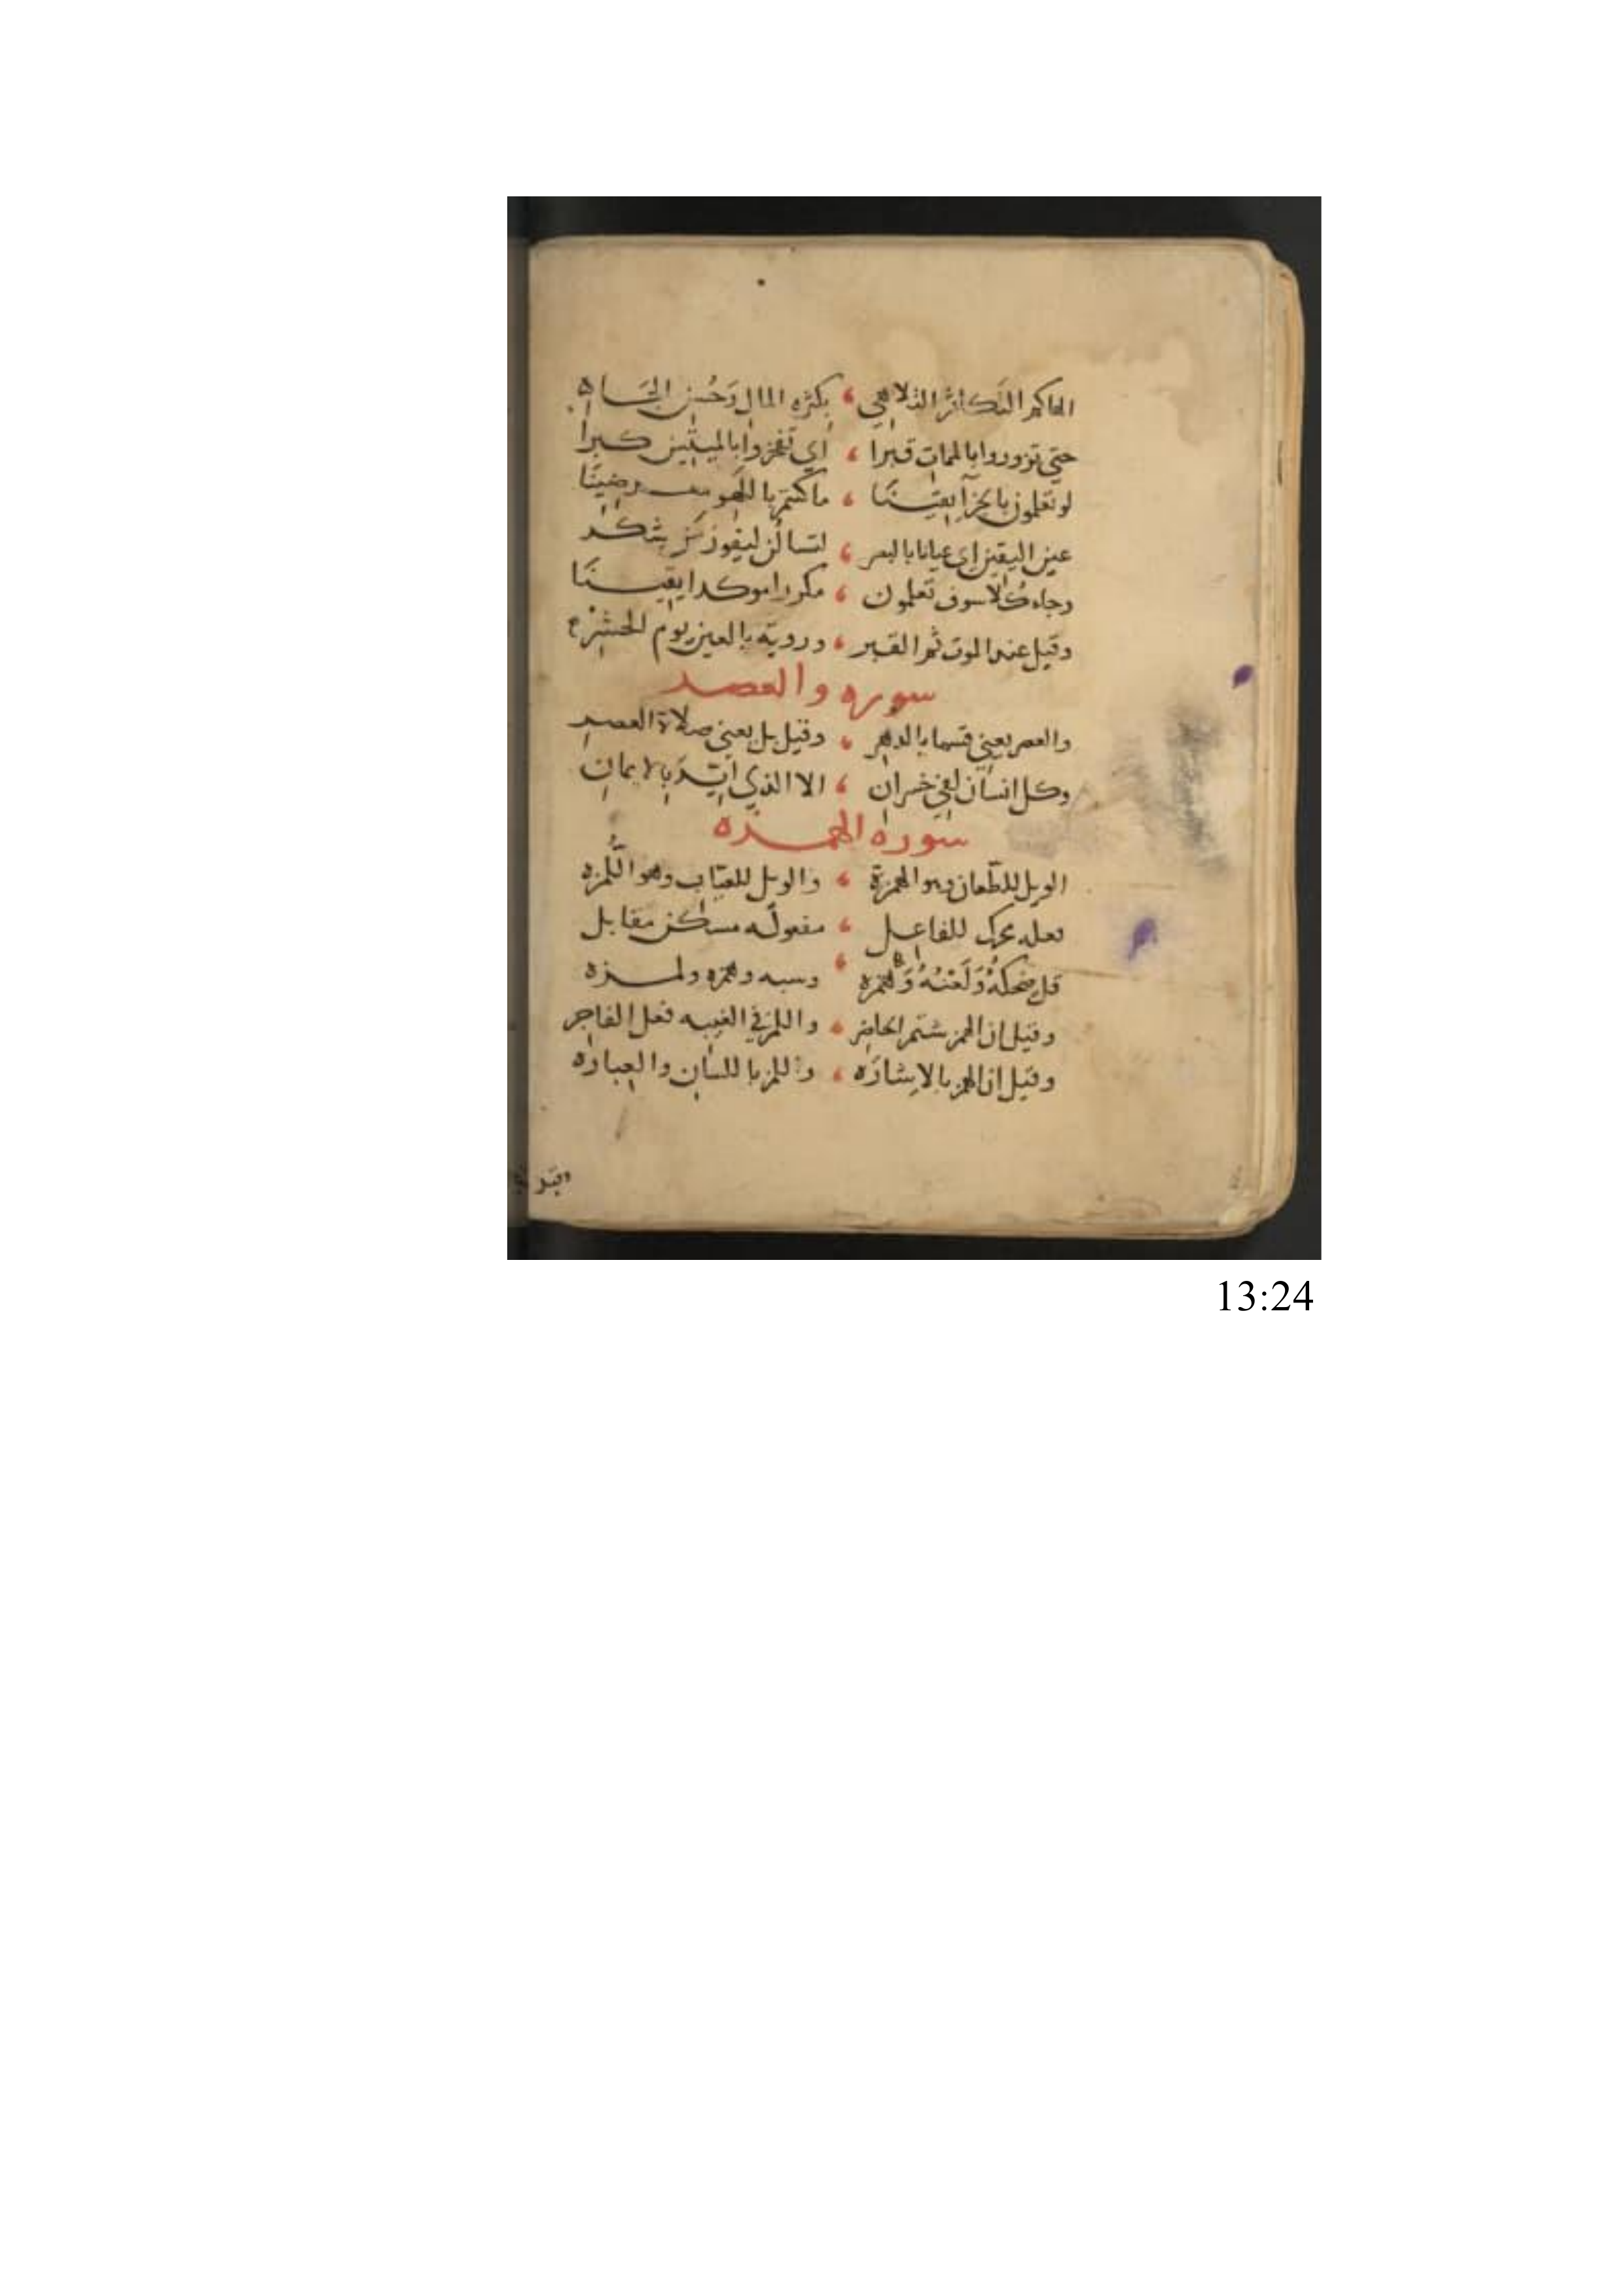 الهاكم التكاثر التلاهي ، بكثره المال وحسن الجاه
حتي تزوروا بالممات قبرا ، اي تفخروا بالميتين كبرا
لو تعلمون يقينا ، ما كنتم باللهو رضينا
عين اليقين اي عيانا بالبصر ، لتسالن شكر
وجاء كلا سوف تعلمون ، مكررا موكدا يقينا
وقيل عند الموت ثم القبر ، ورويته بالعين يوم الحشر
سوره والعصر
والعصر يعني قسما بالدهر ، وقيل بل يعني صلاة العصر
وكل انسان لفي خسران ، الا الذي ايد بالايمان
سوره الهمزه
الويل للطعان وهو الهمزة ، والويل للعياب وهو اللمزه
فعله محرك للفاعل ، مفعوله مسكن مقابل
قل ضحكة ولعنة وهمزه ، وسبه وهمزه ولمزه
وقيل ان الهمز شتم الحاضر ، واللمز في الغيبه فعل الفاجر
وقيل ان الهمز بالاشاره ، واللمز باللسان والعباره
وقيل
13:24